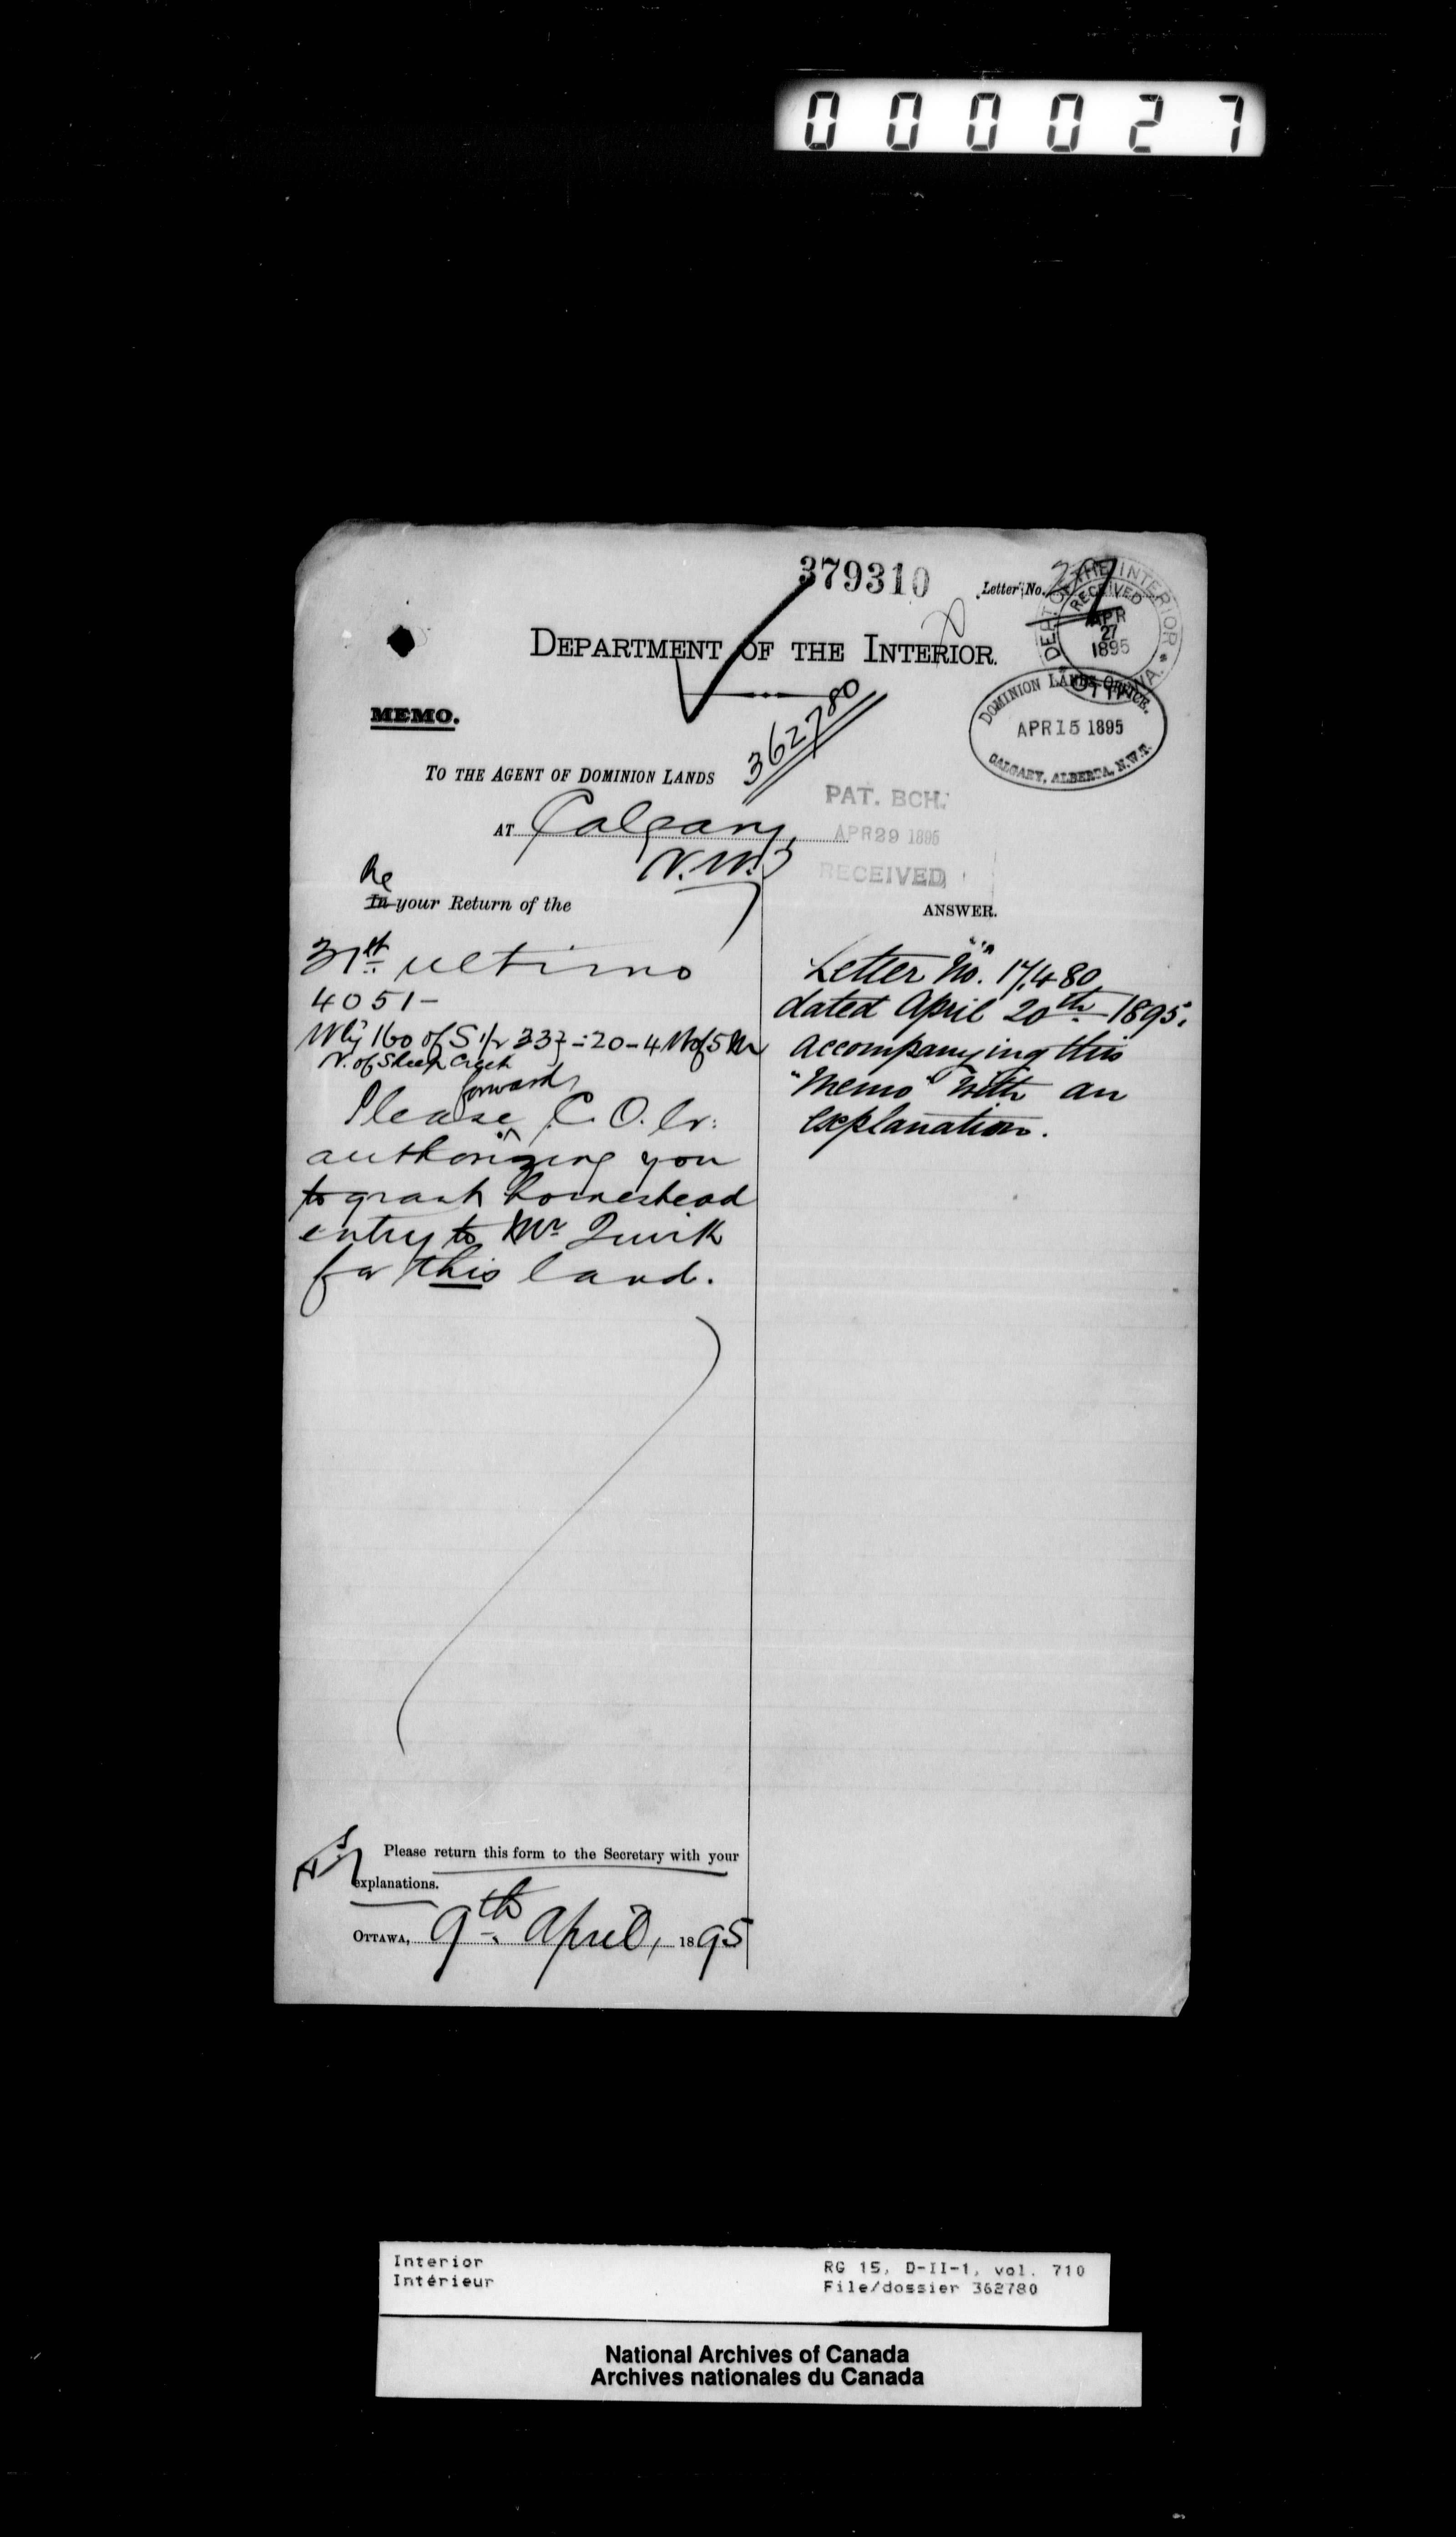 000027
379310
Letter No. 217
DEPT OF THE INTERIOR * OTTAWA *
RECEIVED
APR
27
1895
DEPARTMENT OF THE INTERIOR.
DOMINION LANDS OFFICE.
APR 15 1895
CALGARY, ALBERTA, N.W.T.
MEMO.
362780
TO THE AGENT OF DOMINION LANDS
PAT. BCH.
APR 29 1895
RECEIVED
AT Calgary,
N.W.T
Re
In your Return of the
31st ultimo
4051-
Wly 160 of S 1/2 33 - 20 - 4 W of 5 M
N. of Sheep Creek
forward
Please C. O. Lr.
authorizing you
to grant homestead
entry to Mr Quirk
for this land.
Please return this form to the Secretary with your
explanations.
OTTAWA, 9th April, 1895
ANSWER.
Letter "No. 17,480"
dated April 20th 1895,
accompanying this
"Memo" with an
explanation.
Interior
Intérieur
RG 15, D-II-1, vol. 710
File/dossier 362780
National Archives of Canada
Archives nationales du Canada